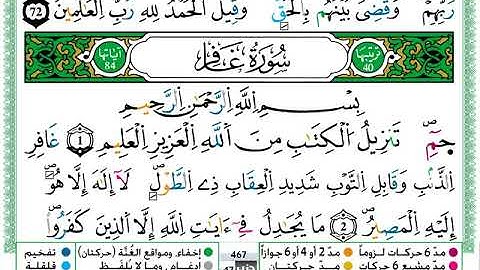 رَبِّهِمْ وَقُضِيَ بَيْنَهُم بِالْحَقِّ وَقِيلَ الْحَمْدُ لِلهِ رَبِّ الْعَٰلَمِينَ 72
رتبتها 40 سُورَةُ غَافِرٍ آياتها 84
بِسْمِ اللَّهِ الرَّحْمَٰنِ الرَّحِيمِ
حمٓ تَنزِيلُ الْكِتَٰبِ مِنَ اللَّهِ الْعَزِيزِ الْعَلِيمِ 1 غَافِرِ
الذَّنۢبِ وَقَابِلِ التَّوْبِ شَدِيدِ الْعِقَابِ ذِي الطَّوْلِ لَآ إِلَٰهَ إِلَّا هُوَ
إِلَيْهِ الْمَصِيرُ 2 مَا يُجَٰدِلُ فِيٓ ءَايَٰتِ اللَّهِ إِلَّا الَّذِينَ كَفَرُواْ
مدّ 6 حركات لزوماً مدّ 2 أو 4 أو 6 جوازاً 467 إخفاء، ومواقع الغُنَّة (حركتان) تفخيم
مدّ مشبع 6 حركات مدّ حركتان إدغام، وما لا يُلفَظ قلقلة